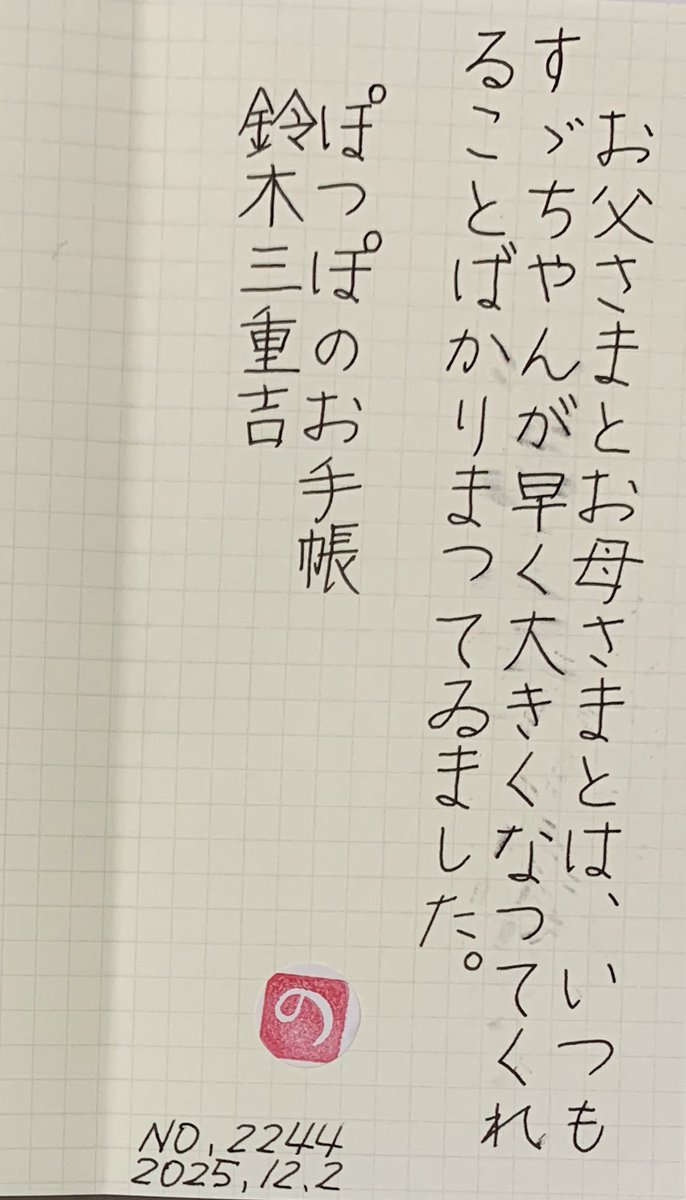 お父さまとお母さまとは、いつも
すゞちやんが早く大きくなつてくれ
ることばかりまつてゐました。
ぽつぽのお手帳
鈴木三重吉
の
NO,2244
2025,12.2